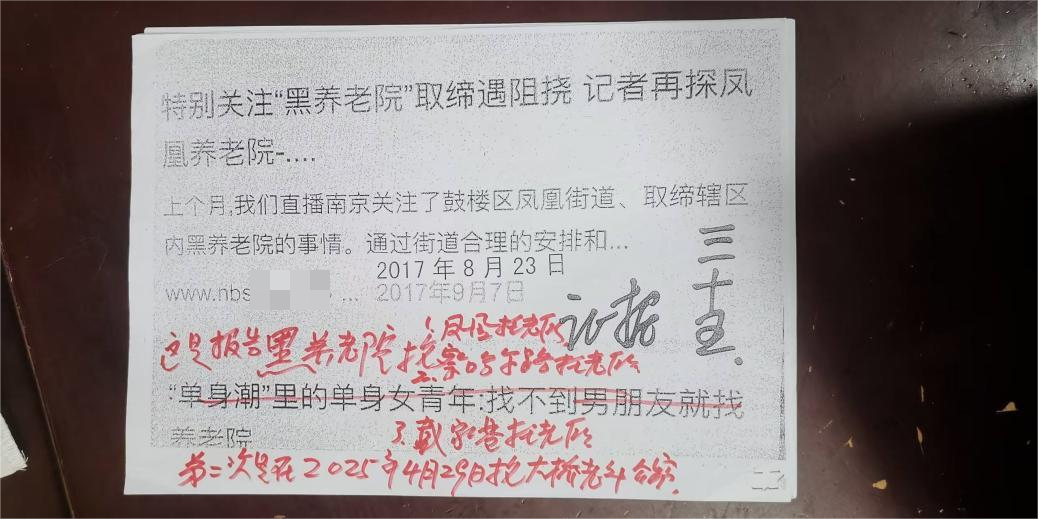 特别关注“黑养老院”取缔遇阻挠 记者再探凤
凰养老院-....
上个月,我们直播南京关注了鼓楼区凤凰街道、取缔辖区
内黑养老院的事情。通过街道合理的安排和...
2017年8月23日
www.nbs ... 2017年9月7日
证据
三十五.
这是报告黑养老院
托老所
2、 托老所
“单身潮”里的单身女青年:找不到男朋友就找
养老院
3 戴家巷托老所
第二次是在2025年4月29日 大桥